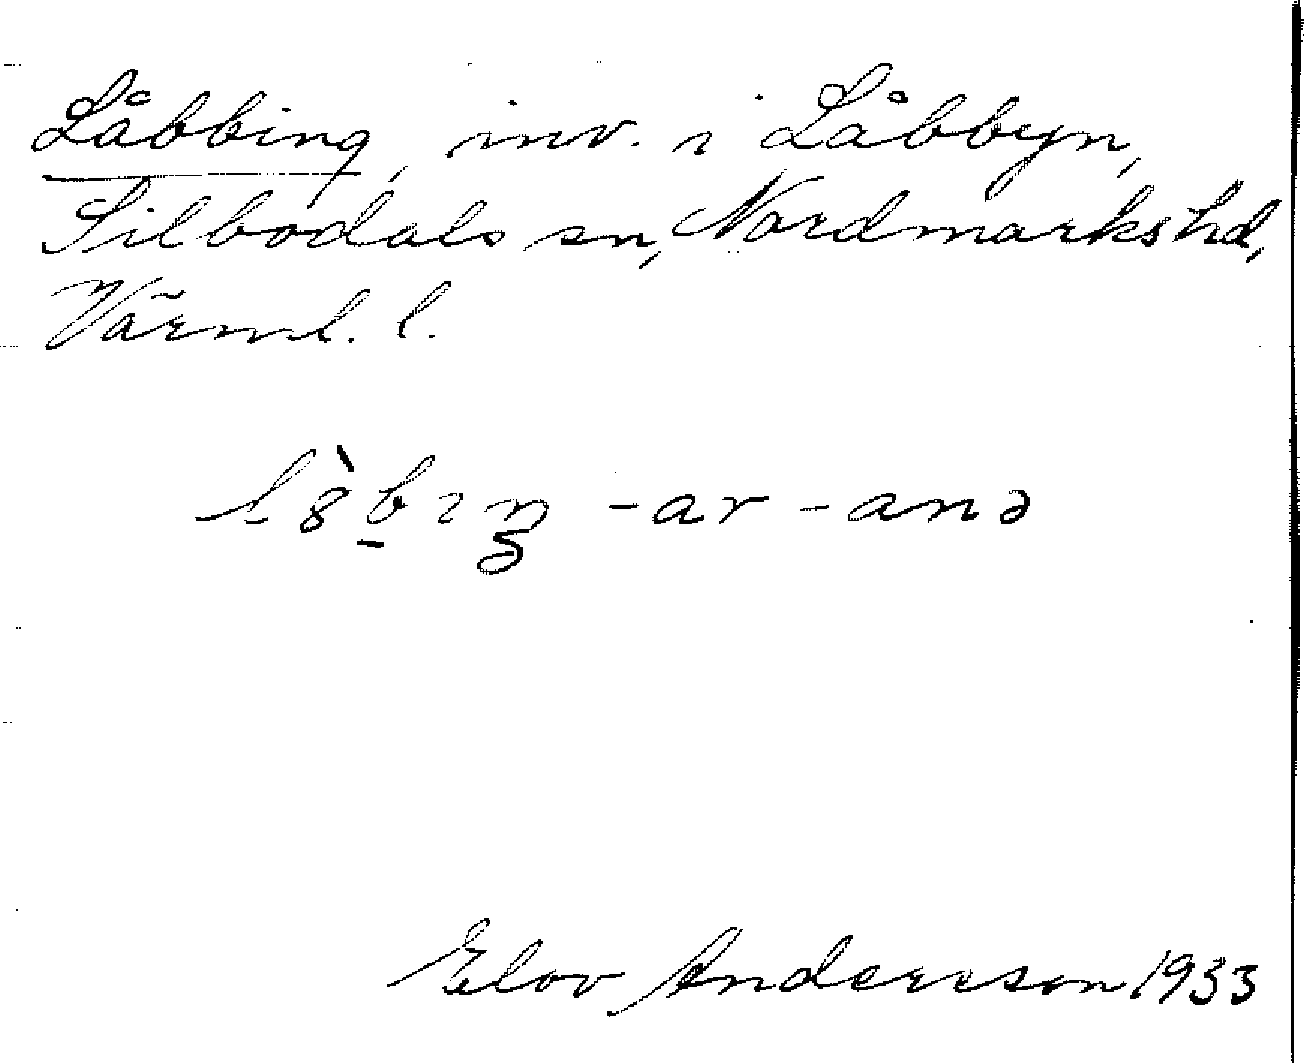 Låbbing, inv. i Låbbyn,
Silbodals sn, Nordmarks hd,
Värml. l.
-ar -anə
Elov Andersson 1933